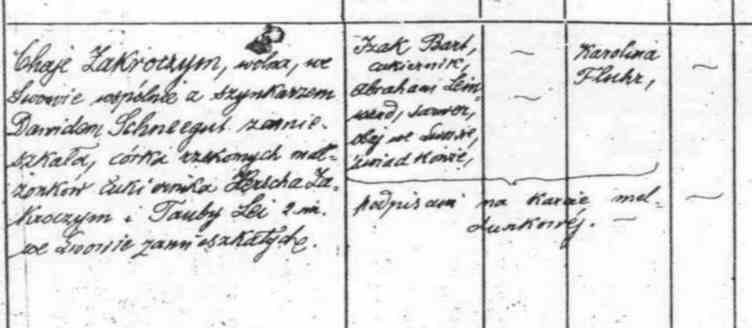 Chaje Zakroczym, wolna, we
Lwowie wspólnie z szynkarzem
Dawidem Schneegut zamie-
szkała, córka rzekomych mał-
żonków cukiernika Herscha Za-
kroczym i Tauby Lei 2 im.
we Lwowie zamieszkałych.
Izak Bart,
cukiernik,
Abraham Lein-
wand,
obaj we Lwowie,
świadkowie,
~
~
Karolina
Fluhr,
~
podpisani na karcie mel-
dunkowéj. ~
~